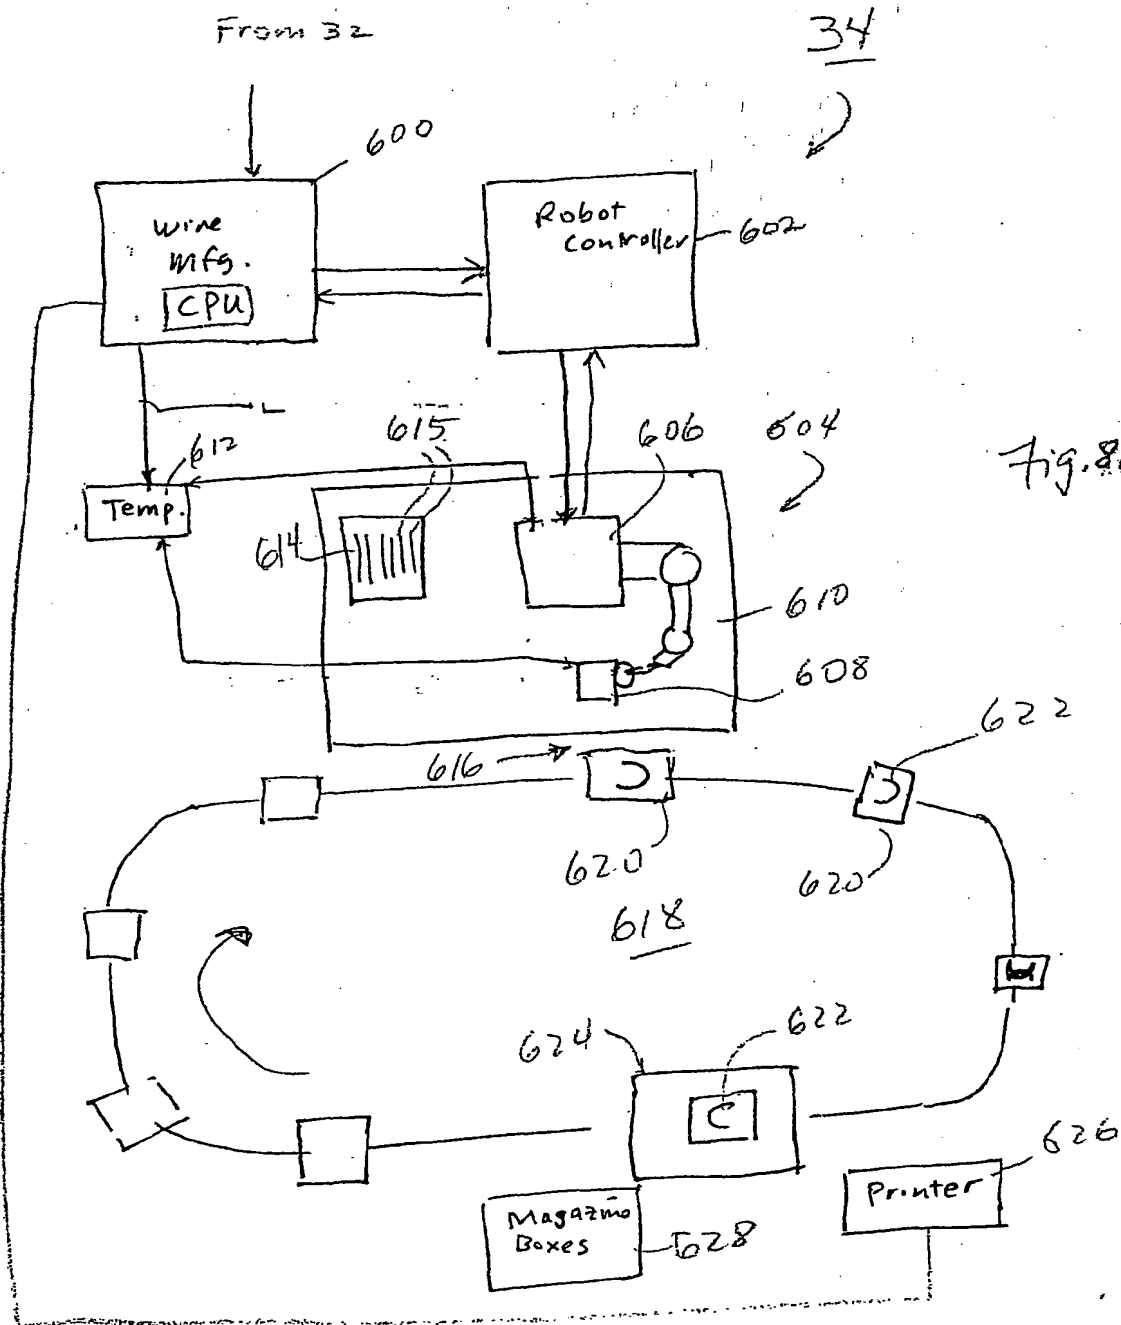 From 32
34
600
wire
mfg.
CPU
Robot
Controller
602
L
612
Temp.
615
606
604
Fig. 8
614
610
608
616
622
620
620
618
624
622
626
Printer
Magazine
Boxes
628